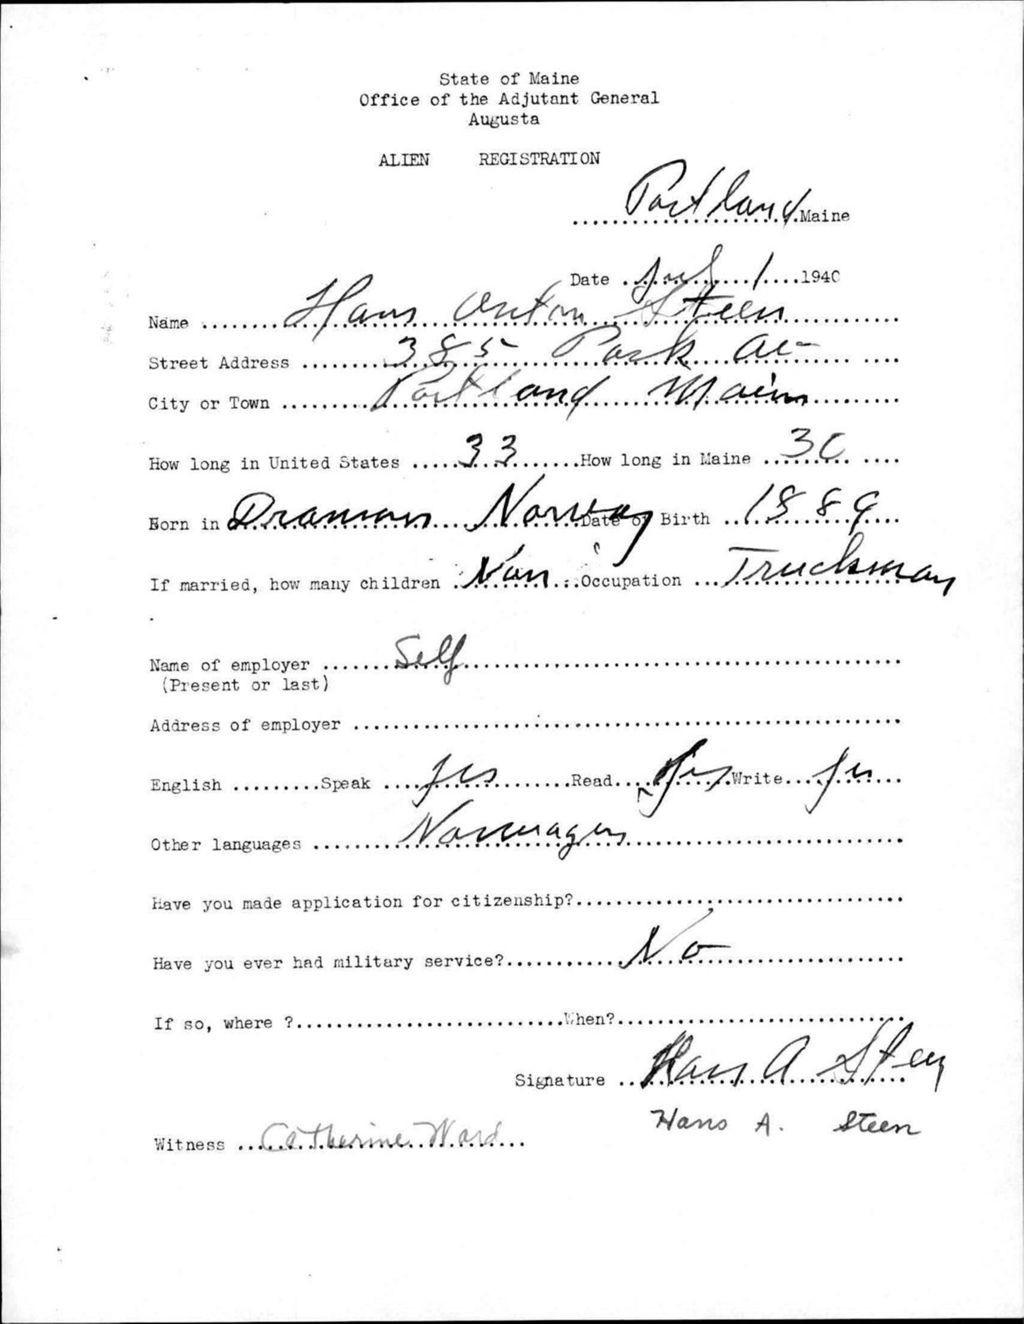 State of Maine
Office of the Adjutant General
Augusta
ALIEN REGISTRATION
Portland Maine
Date July 1 1940
Name Hans Anton Steen
Street Address 385 Park Av-
City or Town Portland Maine
How long in United States 33 How long in Maine 30
Born in Drammen Norway Date of Birth 1889
If married, how many children Non Occupation Truckman
Name of employer Self
(Present or last)
Address of employer
English Speak yes Read yes Write yes
Other languages Norwagen
Have you made application for citizenship?
Have you ever had military service? No
If so, where ? When?
Signature Hans A Steen
Hans A. Steen
Witness Catherine Ward